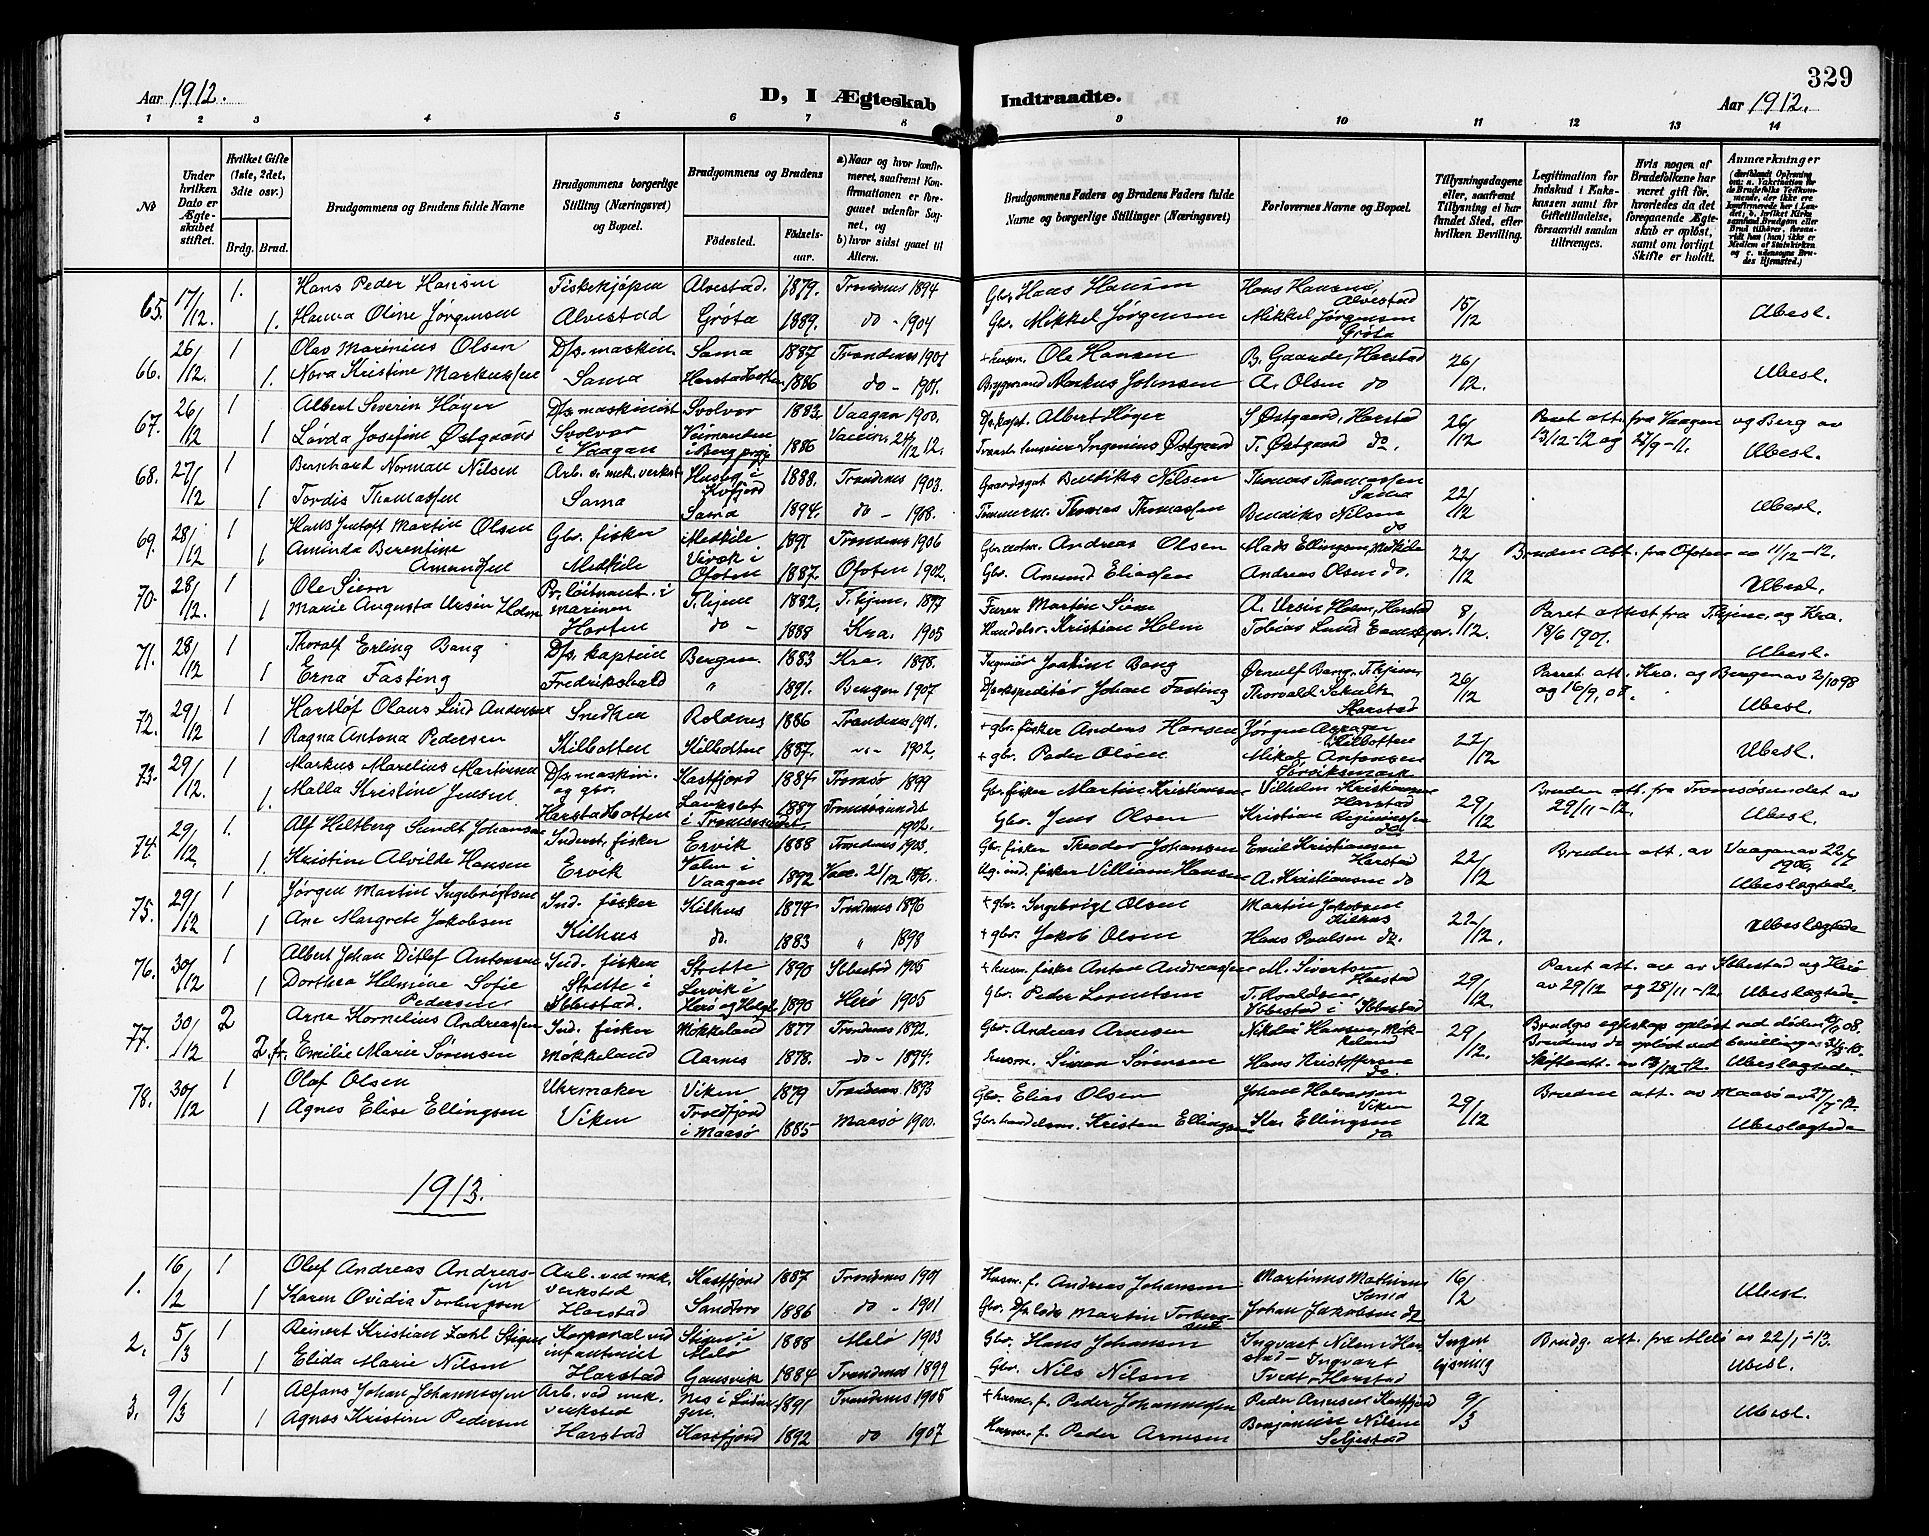 329
Aar 1912.
D, I Ægteskab
Indtraadte.
Aar 1912.
1 2 3 4 5 6 7 8 9 10 11 12 13 14
No
Under hvilken Dato er Ægteskabet stiftet.
Hvilket Gifte (1ste, 2det, 3die osv.)
Brdg. Brud.
Brudgommens og Brudens fulde Navne
Brudgommens borgerlige Stilling (Næringsvei) og Bopæl.
Brudgommens og Brudens
Fødested. Fødselsaar.
a) Naar og hvor konfirmeret, saafremt Konfirmationen er foregaaet udenfor Sognet, og
b) hvor sidst gaaet til Alters.
Brudgommens Faders og Brudens Faders fulde Navne og borgerlige Stillinger (Næringsvei)
Forlovernes Navne og Bopæl.
Tillysningsdagene eller, saafremt Tillysning ei har fundet Sted, efter hvilken Bevilling.
Legitimation for Indskud i Enkekassen samt for Giftetilladelse, forsaavidt saadan tiltrænges.
Hvis nogen af Brudefolkene har været gift før, hvorledes da det foregaaende Ægteskab er opløst, samt om lovligt Skifte er holdt.
Anmærkninger
65. 17/12. 1. Hans Peder Hansen Fiskekjøper Alvestad. 1879. Trondenes 1894 Gbr. Hans Hansen Hans Hansen, Alvestad 15/12 Ubesl.
1. Hanna Oline Jørgensen Alvestad Grøta 1889. do - 1904 Gbr. Mikkel Jørgensen Mikkel Jørgensen Grøta
66. 26/12. 1 Olav Marinius Olsen D/s. maskin. Sama 1887 Trondenes 1901 + husm. Ole Hansen B. Gaarder, Harstad 26/12. Ubesl.
1. Nora Kristine Markussen Sama 1886 do - 1901. Markus Johnsen A. Olsen do
67. 26/12 1 Albert Severin Høyer D/s maskinist Svolvær 1883 Vaagan 1900. D/s kapt. Albert Høyer S. Østgaard, Harstad 26/12 Paret att. fra Vaagan og Berg av
1 Lovda Josefine Østgaard Svolvær i Vaagan 1886 Ingenius Østgaard T. Østgaard do. 13/12-12 og 27/9-11. Ubesl.
68. 27/12 1 Bernhard Norman Nilsen Arb. v. mek. verkst. Husby i Kvæfjord 1888. Trondenes 1903. Gaardsgut Bendiks Nilsen Thomas Thomassen Sama 22/12 Ubesl.
1 Tordis Thomassen Sama Sama 1894. do - 1908. Tømmerm. Thomas Thomassen Bendiks Nilsen do
69. 28/12 1 Hans Jentoft Martin Olsen Gbr. fisker Medkile 1891 Trondenes 1906 Andreas Olsen Mads Ellingsen Medkile 22/12 Bruden att. fra Ofoten av 11/12-12.
1 Aminda Berentine Amundsen Medkile Virak i Ofoten 1887. Ofoten 1902. Gbr. Amund Eliassen Andreas Olsen do. Ubesl.
70. 28/12. 1 Ole Siem Pr. løitnant i marinen T.hjem 1882. T.hjem. 1897 Furer Martin Siem A. Ursin Holm, Harstad 8/12. Paret attest fra T.hjem og Kra.
1 Marie Augusta Ursin Holm Horten do - 1888 Kra. 1905 Handelsr. Kristian Holm Tobias Lund 18/6 1907. Ubesl.
71. 28/12 1 Thoralf Erling Bang D/s. kaptein Bergen 1883 Kra. 1898. Ingeniør Joakim Bang Ørnulf Bang, T.hjem 26/12 Parret att. Kra. og Bergen av 2/10 98
1 Erna Fasting Fredrikshald " 1891. Bergen 1907 D/s ekspeditør Johan Fasting Thorvald Schulz Harstad og 16/9. 08. Ubesl.
72. 29/12 1 Hartløf Olaus Lind Andersen Snedker Roldnes 1886 Trondenes 1901. + gbr. fisker Anders Hansen Jørgen Kilbotten 22/12 Ubesl.
1 Ragna Antona Pedersen Kilbotten Kilbotten 1887. -"- 1902. + gbr. Peder Olsen Mikal Antonsen Sørviksmark
73. 29/12. 1 Markus Marelius Martinsen D/s maskin. og gbr. Kastfjord 1884 Tromsø 1899 Gbr. fisker Martin Kristiansen Vilhelm Kristiansen Harstad 29/12 Bruden att. fra Tromsøsundet av
1. Malla Kristine Jensen Harstadbotten i Tromsøsundet. 1887 Tromsøsundet 1902. Gbr. Jens Olsen Kristian do 29/11-12. Ubesl.
74. 29/12 1. Alf Heltberg Sundt Johansen Inderst, fisker Ervik 1888 Trondenes 1903. Gbr. fisker Theodor Johansen Emil Kristiansen Harstad 22/12 Bruden att. av Vaagan av 22/7 1906.
1. Kristine Alvilde Hansen Ervik i Vaagan 1892 Villiam Hansen A. Kristiansen do Ubeslægtede
75. 29/12 1 Jørgen Martin Ingebrigtsen Ind. fisker Kilhus 1874 Trondenes 1896 + gbr. Ingebrigt Olsen Martin Jakobsen Kilhus 22/12. Ubeslægtede
1 Ane Margrete Jakobsen Kilhus do. 1883 " 1898 + gbr. Jakob Olsen Hans Paulsen do.
76. 30/12 1 Albert Johan Ditlef Antonsen Ind. fisker Strette 1890 Ibbestad 1905 + husm. fisker Anton Andreassen M. Sivertsen Harstad 29/12 Paret att. av Ibbestad og Herø
1 Dorthea Helmine Sofie Pedersen Strette i Ibbestad. 1890 Herø 1905 Gbr. Peder Lorentsen Ibbestad i Ibbestad av 29/12 og 28/11-12. Ubeslægtede
77. 30/12 2 Arne Kornelius Andreassen Ind. fisker Møkkeland 1877 Trondenes 1892. Gbr. Andreas Arnesen Nikolai Hansen, Møkkeland 29/12. Brudgs. egteskap opløst ved døden 08.
2.f. Emilie Marie Sørensen Møkkeland Aarnes 1878. do - 1894. Husm. Simon Sørensen Hans Kristoffersen do Brudens do opløst ved bevilling
Skifteatt. av 13/12-12. Ubeslægtede
78. 30/12 1 Olaf Olsen Uhrmaker Viken 1879 Trondenes 1893 Gbr. Elias Olsen Johan Halvorsen Viken 29/12 Bruden att. av Maasø av 27/7-12.
1 Agnes Elise Ellingsen Viken Troldfjord i Maasø 1885 Maasø 1900. Gbr. handelsm. Kristen Ellingsen Kr. Ellingsen do Ubeslægtede
1913.
1. 16/2 1 Oluf Andreas Andreassen Arb. ved mek. verksted Kastfjord 1887 Trondenes 1901 Husm. f. Andreas Johansen Martinus Mathisen Sama 16/2 Ubesl.
1 Karen Ovidia Torbergsen Harstad Sandtorv 1886 do - 1901 Gbr. D/s lods Martin Torbergsen Johan Jakobsen do
2. 5/3 1 Reinert Kristian Zahl Stigen Korporal ved infanteriet Stigen i Melø 1888 Melø 1903 Gbr. Hans Johansen Ingvart Nilsen Harstad - Ingen lysning Brudg. att. fra Melø av 22/1-13.
1 Elida Marie Nilsen Harstad Gausvik 1884 Trondenes 1899 Gbr. Nils Nilsen Ingvart Tvedt, Harstad Ubesl.
3. 9/3 1 Alfons Johan Johannessen Arb. ved mek. verksted 1891 Trondenes 1905 + husm. f. Peder Johannessen Peder Arnesen Kastfjord 9/3 Ubesl.
1 Agnes Kristine Pedersen Harstad Kastfjord 1892 do 1907 Husm. f. Peder Arnesen Benjamin Nilsen Seljestad